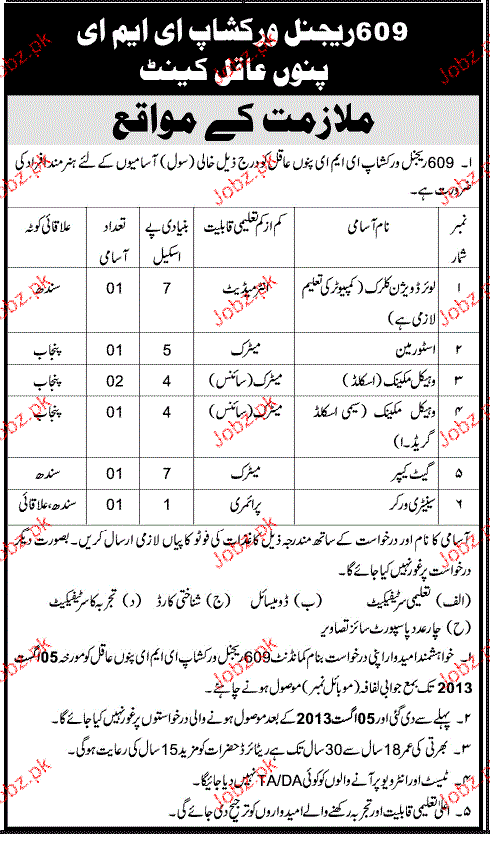 609 ریجنل ورکشاپ ای ایم ای
پنوں عاقل کینٹ
ملازمت کے مواقع
۱۔ 609 ریجنل ورکشاپ ای ایم ای پنوں عاقل کو درج ذیل خالی (سول) آسامیوں کے لئے ہنرمند افراد کی
ضرورت ہے۔
نمبر شمار نام آسامی کم از کم تعلیمی قابلیت بنیادی پے اسکیل تعداد آسامی علاقائی کوٹہ
۱ لوئر ڈویژن کلرک (کمپیوٹر کی تعلیم لازمی ہے) انٹرمیڈیٹ 7 01 سندھ
۲ اسٹورمین میٹرک 5 01 پنجاب
۳ وہیکل مکینک (اسکلڈ) میٹرک (سائنس) 4 02 پنجاب
۴ وہیکل مکینک (سیمی اسکلڈ گریڈ۔۱) میٹرک (سائنس) 4 01 پنجاب
۵ گیٹ کیپر میٹرک 7 01 سندھ
۶ سینیٹری ورکر پرائمری 1 01 سندھ، علاقائی
آسامی کا نام اور درخواست کے ساتھ مندرجہ ذیل کاغذات کی فوٹو کاپیاں لازمی ارسال کریں۔ بصورت دیگر
درخواست پر غور نہیں کیا جائے گا۔
(الف) تعلیمی سرٹیفکیٹ (ب) ڈومیسائل (ج) شناختی کارڈ (د) تجربہ کا سرٹیفکیٹ
(ح) چار عدد پاسپورٹ سائز تصاویر
۱۔ خواہشمند امیدوار اپنی درخواست بنام کمانڈنٹ 609 ریجنل ورکشاپ ای ایم ای پنوں عاقل کو مورخہ 05 اگست
2013 تک بمع جوابی لفافہ (موبائل نمبر) موصول ہونے چاہئے۔
۲۔ پہلے سے دی گئی اور 05 اگست 2013 کے بعد موصول ہونے والی درخواستوں پر غور نہیں کیا جائے گا۔
۳۔ بھرتی کی عمر 18 سال سے 30 سال تک ہے ریٹائرڈ حضرات کو مزید 15 سال کی رعایت ہوگی۔
۴۔ ٹیسٹ اور انٹرویو پر آنے والوں کو کوئی TA/DA نہیں دیا جائیگا۔
۵۔ اعلیٰ تعلیمی قابلیت اور تجربہ رکھنے والے امیدواروں کو ترجیح دی جائے گی۔
Jobz.pk